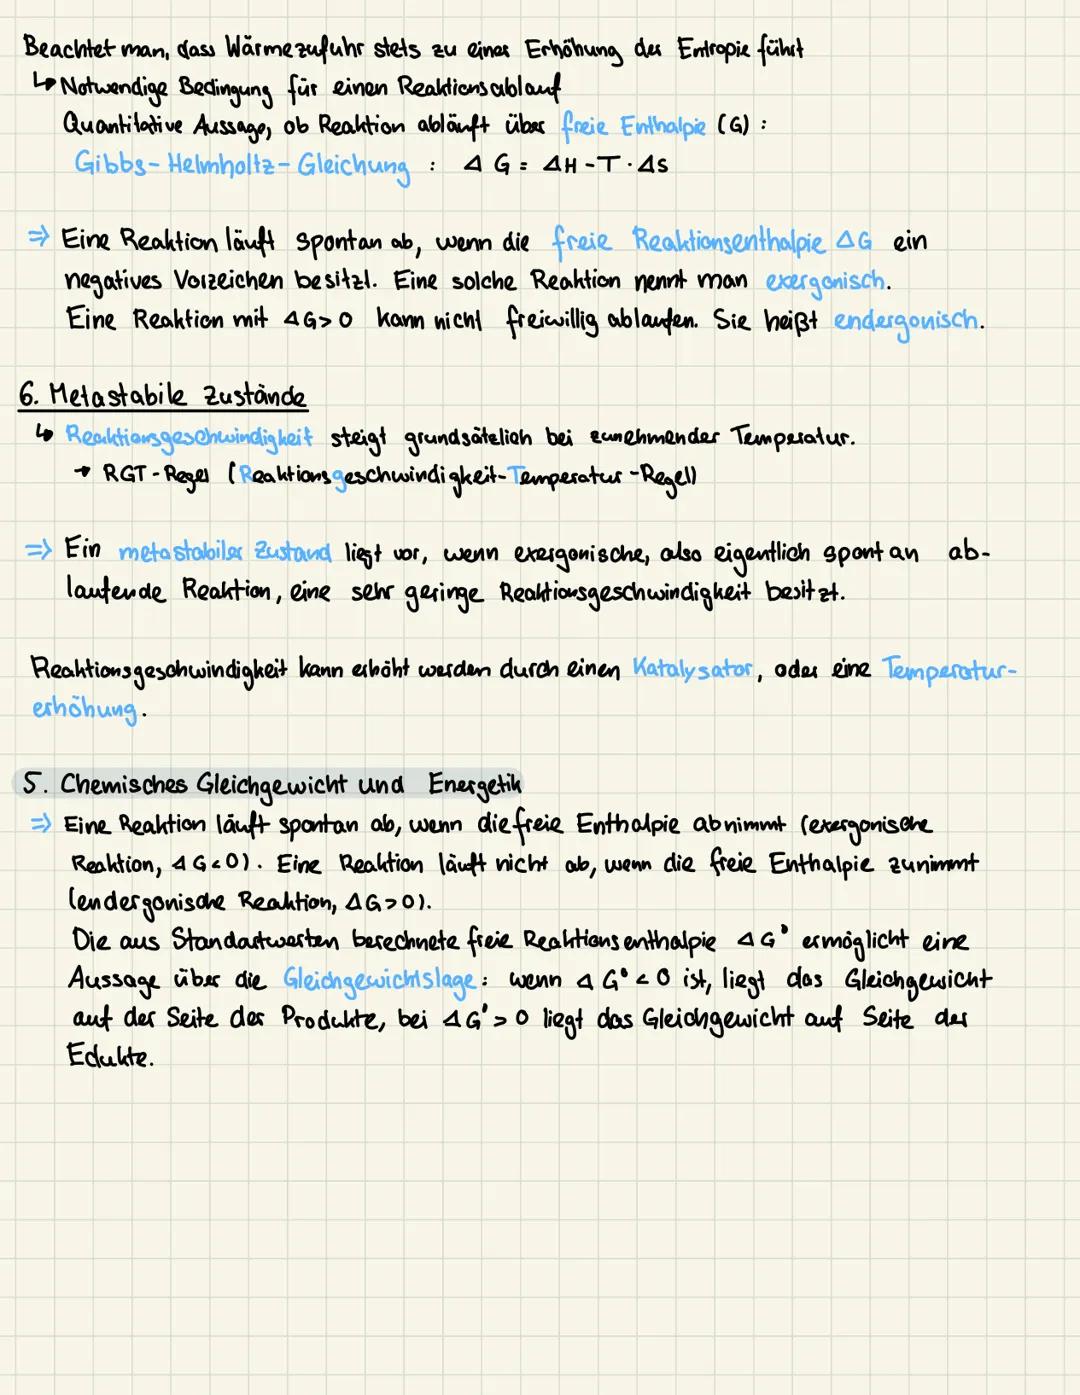 Beachtet man, dass Wärmezufuhr stets zu einer Erhöhung der Entropie führt
↳ Notwendige Bedingung für einen Reaktionsablauf
Quantitative Aussage, ob Reaktion abläuft über freie Enthalpie (G) :
Gibbs-Helmholtz-Gleichung : ΔG = ΔH - T · ΔS
⇒ Eine Reaktion läuft spontan ab, wenn die freie Reaktionsenthalpie ΔG ein
negatives Vorzeichen besitzt. Eine solche Reaktion nennt man exergonisch.
Eine Reaktion mit ΔG > 0 kann nicht freiwillig ablaufen. Sie heißt endergonisch.
6. Metastabile Zustände
↳ Reaktionsgeschwindigkeit steigt grundsätzlich bei zunehmender Temperatur.
→ RGT-Regel (Reaktionsgeschwindigkeit-Temperatur-Regel)
⇒ Ein metastabiler Zustand liegt vor, wenn exergonische, also eigentlich spontan ab-
laufende Reaktion, eine sehr geringe Reaktionsgeschwindigkeit besitzt.
Reaktionsgeschwindigkeit kann erhöht werden durch einen Katalysator, oder eine Temperatur-
erhöhung.
5. Chemisches Gleichgewicht und Energetik
⇒ Eine Reaktion läuft spontan ab, wenn die freie Enthalpie abnimmt (exergonische
Reaktion, ΔG < 0). Eine Reaktion läuft nicht ab, wenn die freie Enthalpie zunimmt
(endergonische Reaktion, ΔG > 0).
Die aus Standartwerten berechnete freie Reaktionsenthalpie ΔG° ermöglicht eine
Aussage über die Gleichgewichtslage: wenn ΔG° < 0 ist, liegt das Gleichgewicht
auf der Seite der Produkte, bei ΔG° > 0 liegt das Gleichgewicht auf Seite der
Edukte.